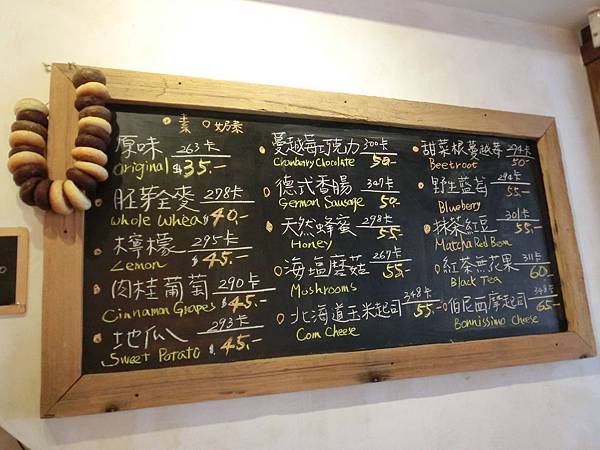 素 奶素
原味 263卡
Original $35.-
胚芽全麥 278卡
Whole Wheat $40.-
檸檬 295卡
Lemon $45.-
肉桂葡萄 290卡
Cinnamon Grapes $45.-
地瓜 293卡
Sweet Potato $45.-
蔓越莓巧克力 300卡
Cranberry Chocolate 50.-
德式香腸 347卡
German Sausage 50.-
天然蜂蜜 298卡
Honey 55.-
海塩蘑菇 267卡
Mushrooms 55.-
北海道玉米起司 348卡
Corn Cheese 55.-
甜菜根蔓越莓 294卡
Beetroot 50.-
野生藍莓 294卡
Blueberry 55.-
抹茶紅豆 301卡
Matcha Red Bean 55.-
紅茶無花果 311卡
Black Tea 60.-
伯尼西摩起司 343卡
Bonnissimo Cheese 65.-